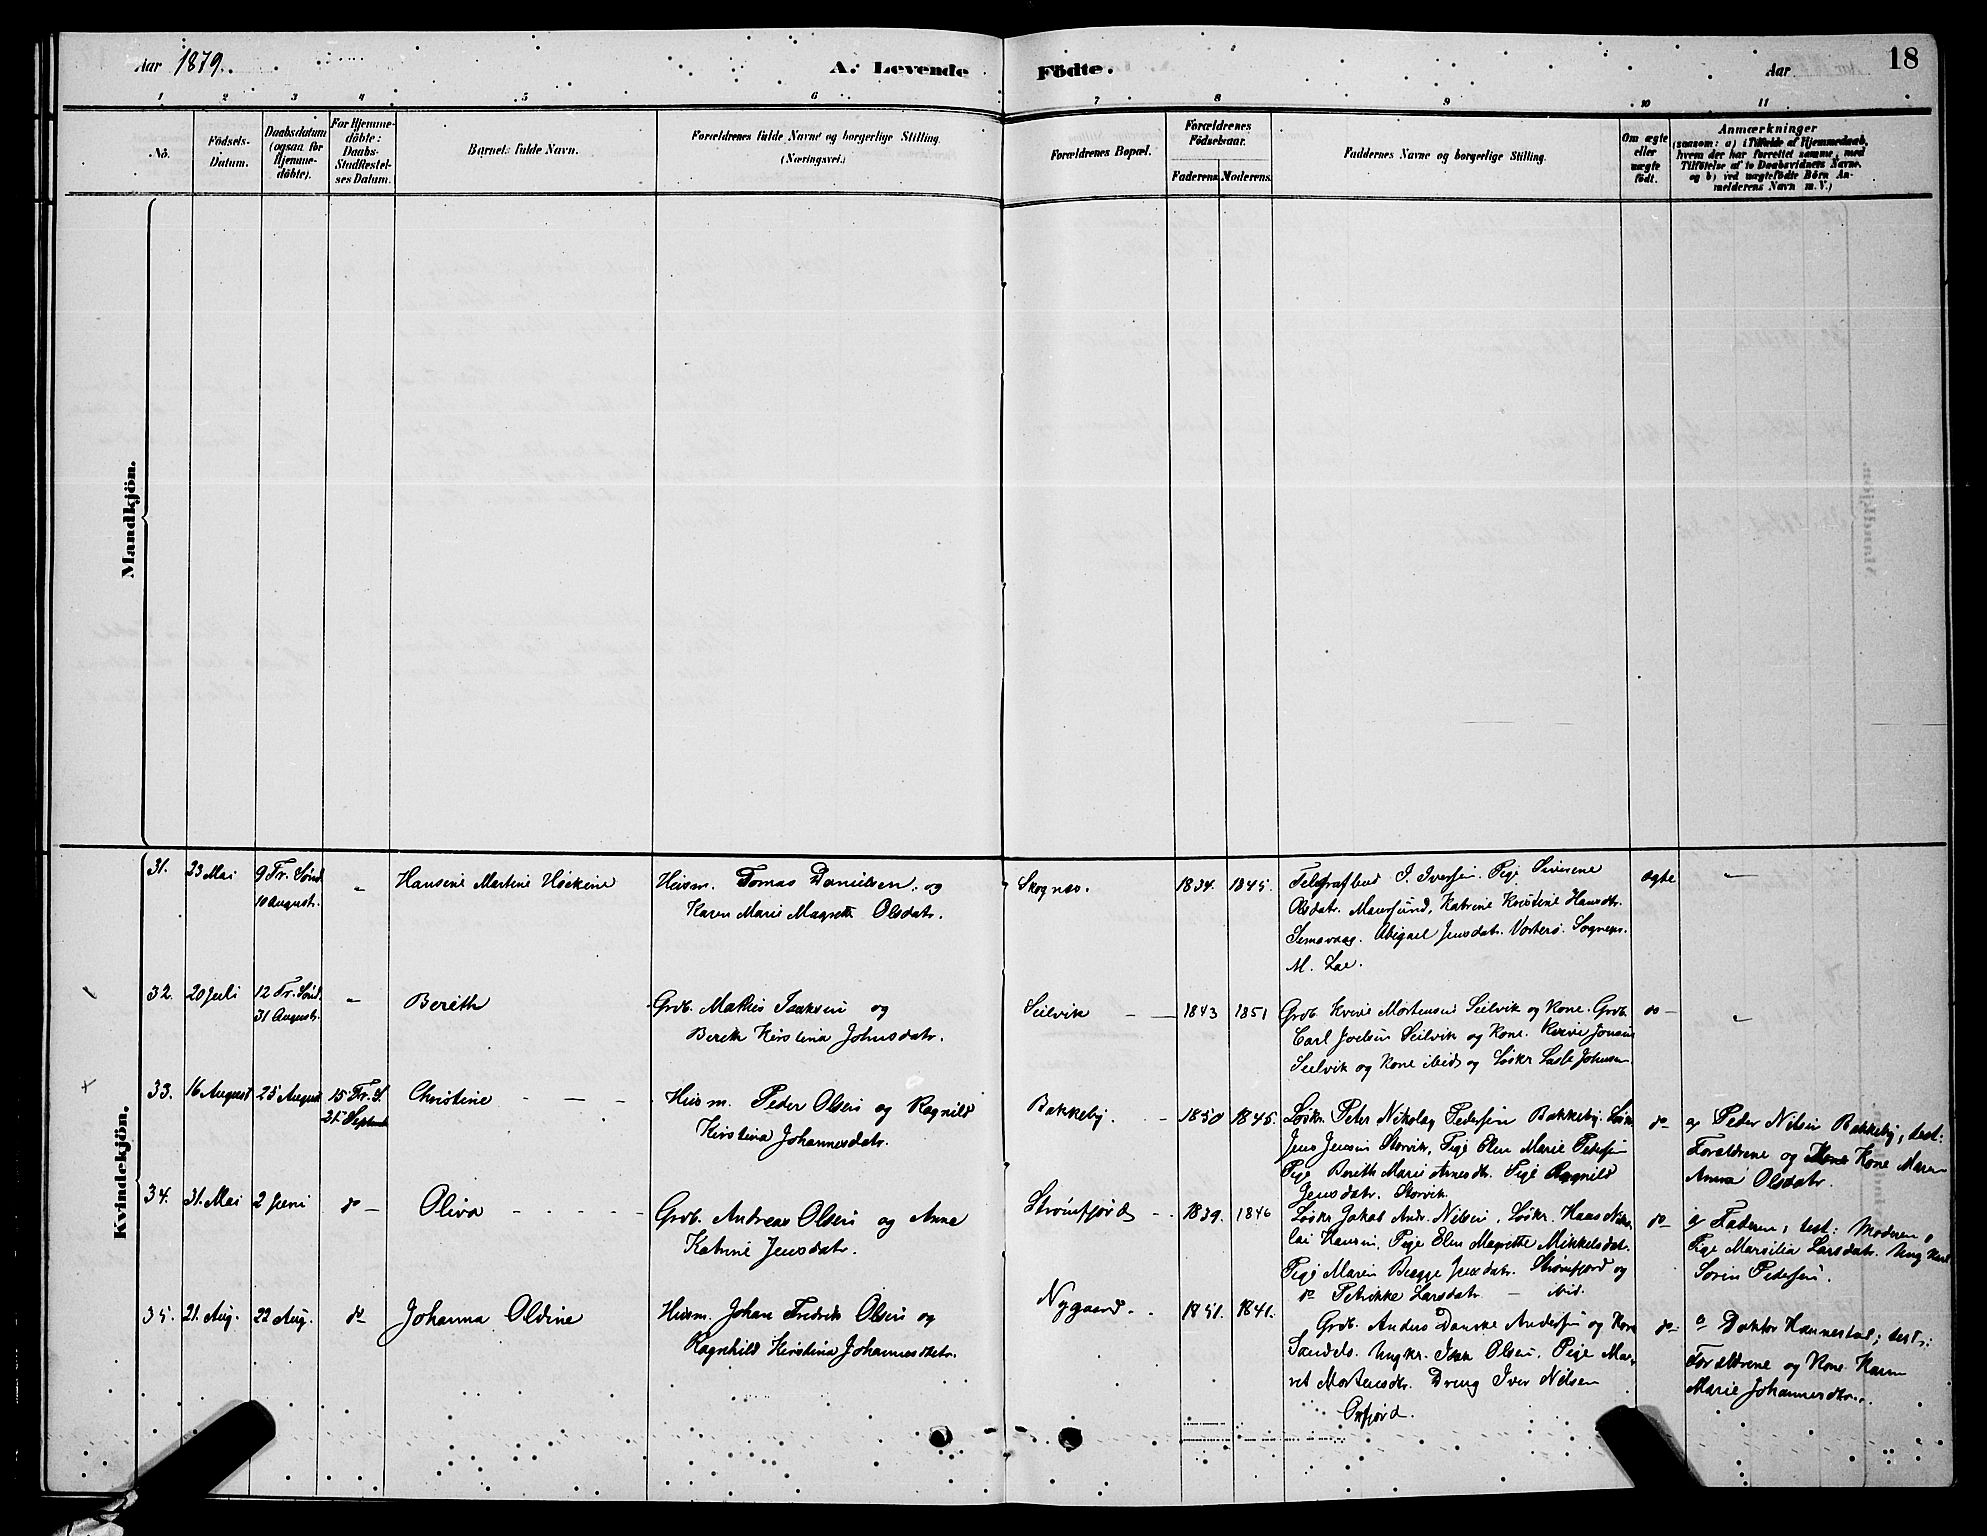 Aar 1879.
A. Levende Födte.
Aar
18
1 2 3 4 5 6 7 8 9 10 11
No.
Födsels-Datum.
Daabsdatum (ogsaa for Hjemme-döbte).
For Hjemme-döbte: Daabs-Stadfæstel-ses Datum.
Barnets fulde Navn.
Forældrenes fulde Navne og borgerlige Stilling. (Næringsvei.)
Forældrenes Bopæl.
Forældrenes Fødselsaar.
Faderens. Moderens.
Faddernes Navne og borgerlige Stilling.
Om ægte eller uægte födt.
Anmærkninger
(saasom: a) i Tilfælde af Hjemmedaab,
hvem der har forrettet samme, med
Tilföielse af to Daabsvidners Navne,
og b) ved uægtefödte Börn An-
melderens Navn m. V.)
Mandkjön.
Kvindekjön.
31. 23 Mai 9 Tr. Sönd. 10 August. " Hansine Martine Höckine
Husm. Tomas Danielsen og
Karen Marie Magrethe Olsdatr.
Skognæs. 1834. 1845.
I. Iversen. Pige Siverine
Olsdatr. Maursund, Katrine Kristine Hansdtr.
Abigael Jensdatr. Vorterö. Sognepr.
ægte "
32. 20 Juli 12 Tr. Sönd. 31 August. " Berith
Grdb. Mathis Isaksen og
Berith Kirstina Johnsdatr.
Seilvik 1843 1851
Grdb. Mortensen Seilvik og Kone. Grdb.
Carl Joelsen Seilvik og Kone.
Seilvik og Kone ibid og Löskr
do "
33. 16 August 25 August 15 Tr. S. Septemb. Christine
Husm. Peder Olsen og Ragnild
Kirstina Johannesdatr.
Bakkeby. 1850 1845.
Löskr. Peter Nikolag Pedersen Bakkeby. Löskr.
Jens Jensen Storvik, Pige Elen Marie Pedersen
Pige Berith Marie Arnesdtr. Pige Ragnild
Jensdatr. Storvik.
do
af Peder Nilsen Bakkeby, test:
Forældrene og Kone Maren
Anna Olsdatr.
34. 31. Mai 2 Juni do Oliva
Grdb. Andreas Olsen og Anna
Katrine Jensdatr.
Strømfjord 1839. 1846
Löskr Jakob Andr. Nilsen, Löskr. Hans Niko-
lai Hansen, Pige Elen Magrette Mikkelsdat.
Pige Maren Jensdatr. Strømfjord og
do Petrikke Larsdatr. ibid.
do
af Faderen, test: Moderen,
Pige Marsilia Larsdatr. Ungkarl
Sören Pedersen.
35. 21. Aug. 22 Aug. do Johanna Oldine
Husm. Johan Fredrik Olsen og
Ragnhild Kirstina Johannesdatr.
Nygaard. 1851. 1841.
Grdb. Anders Danske Andersen og Kone
Ungkr. Isak Olsen, Pige Mar-
ret Mortensdtr. Dreng Iver Nilsen
Oxfjord.
do
af Doktor Hannestad; test:
Forældrene og Kone Karen
Marie Johannesdtr.